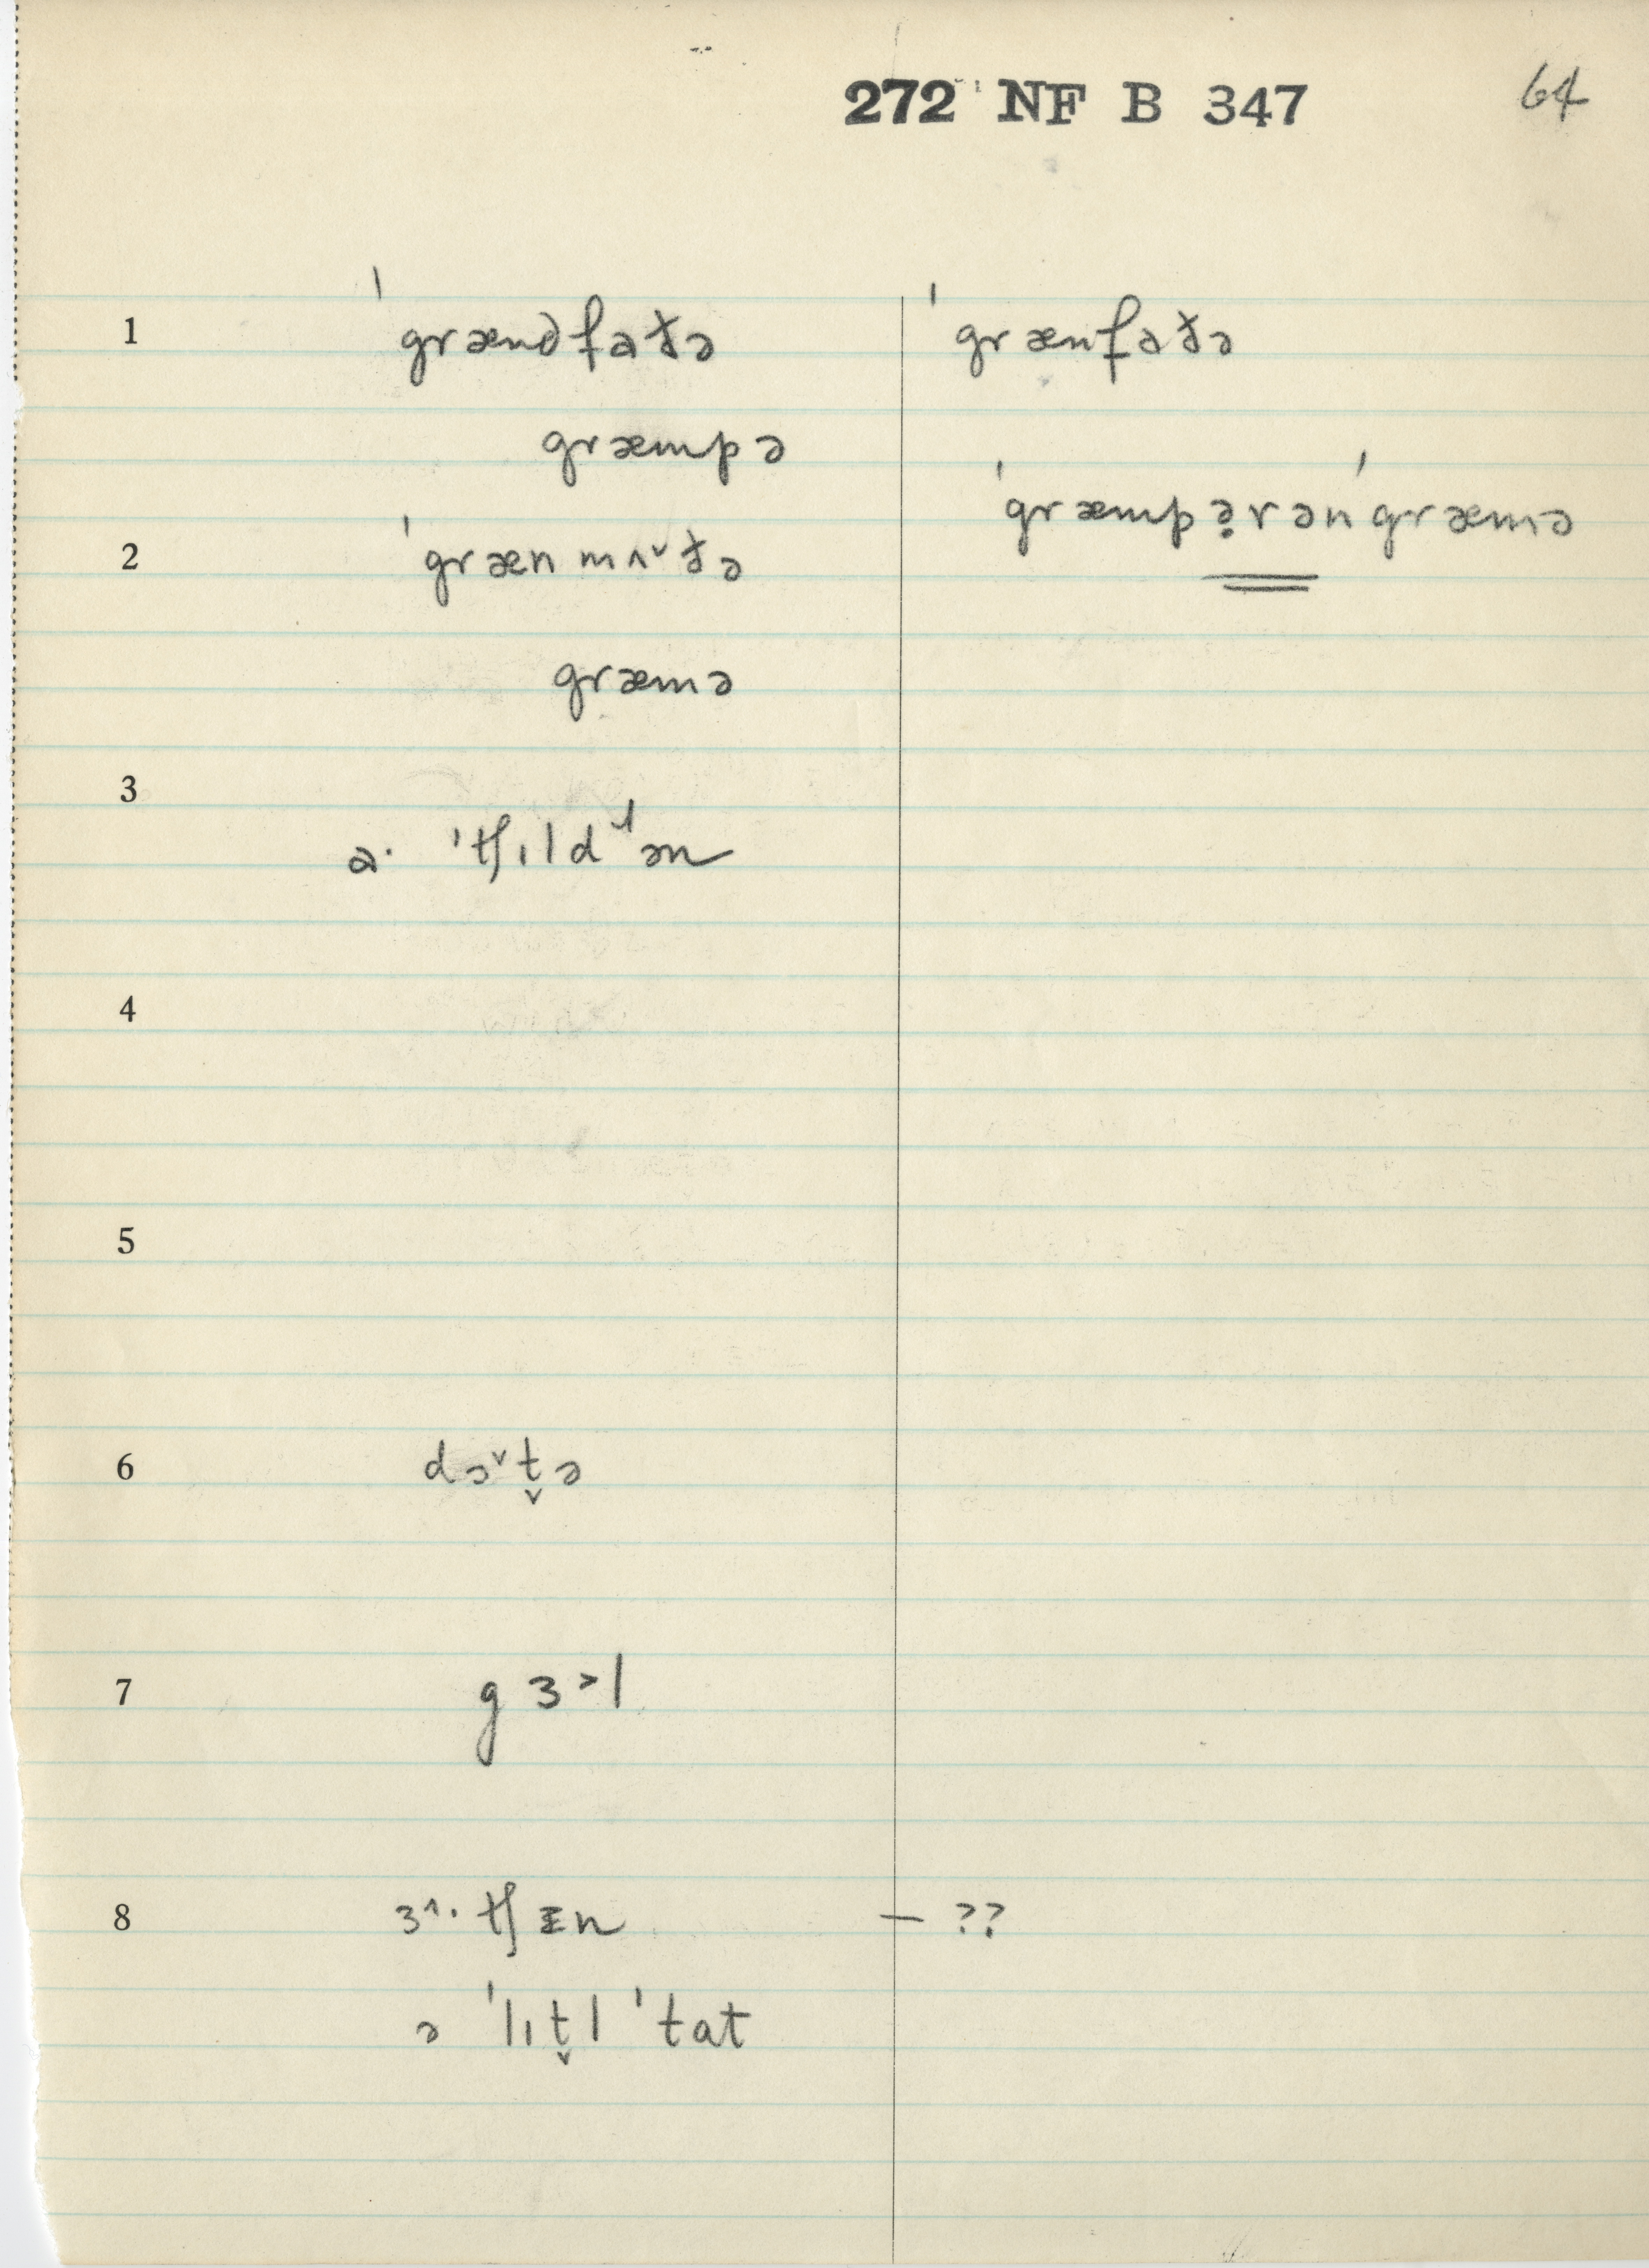 272 NF B 347 64
1 ˈgrændfaðə ˈgrænfaðə
græmpə
ˈgræmpə̣rənˈgræmə
2 ˈgrænmʌ˅ðə
græmə
3
a· ˈtʃɪldˈən
4
5
6 dɔ˅t̬ə
7 gɜ˃l
8 ɜ˄· tʃɪn – ??
ə ˈlɪt̬l ˈtat